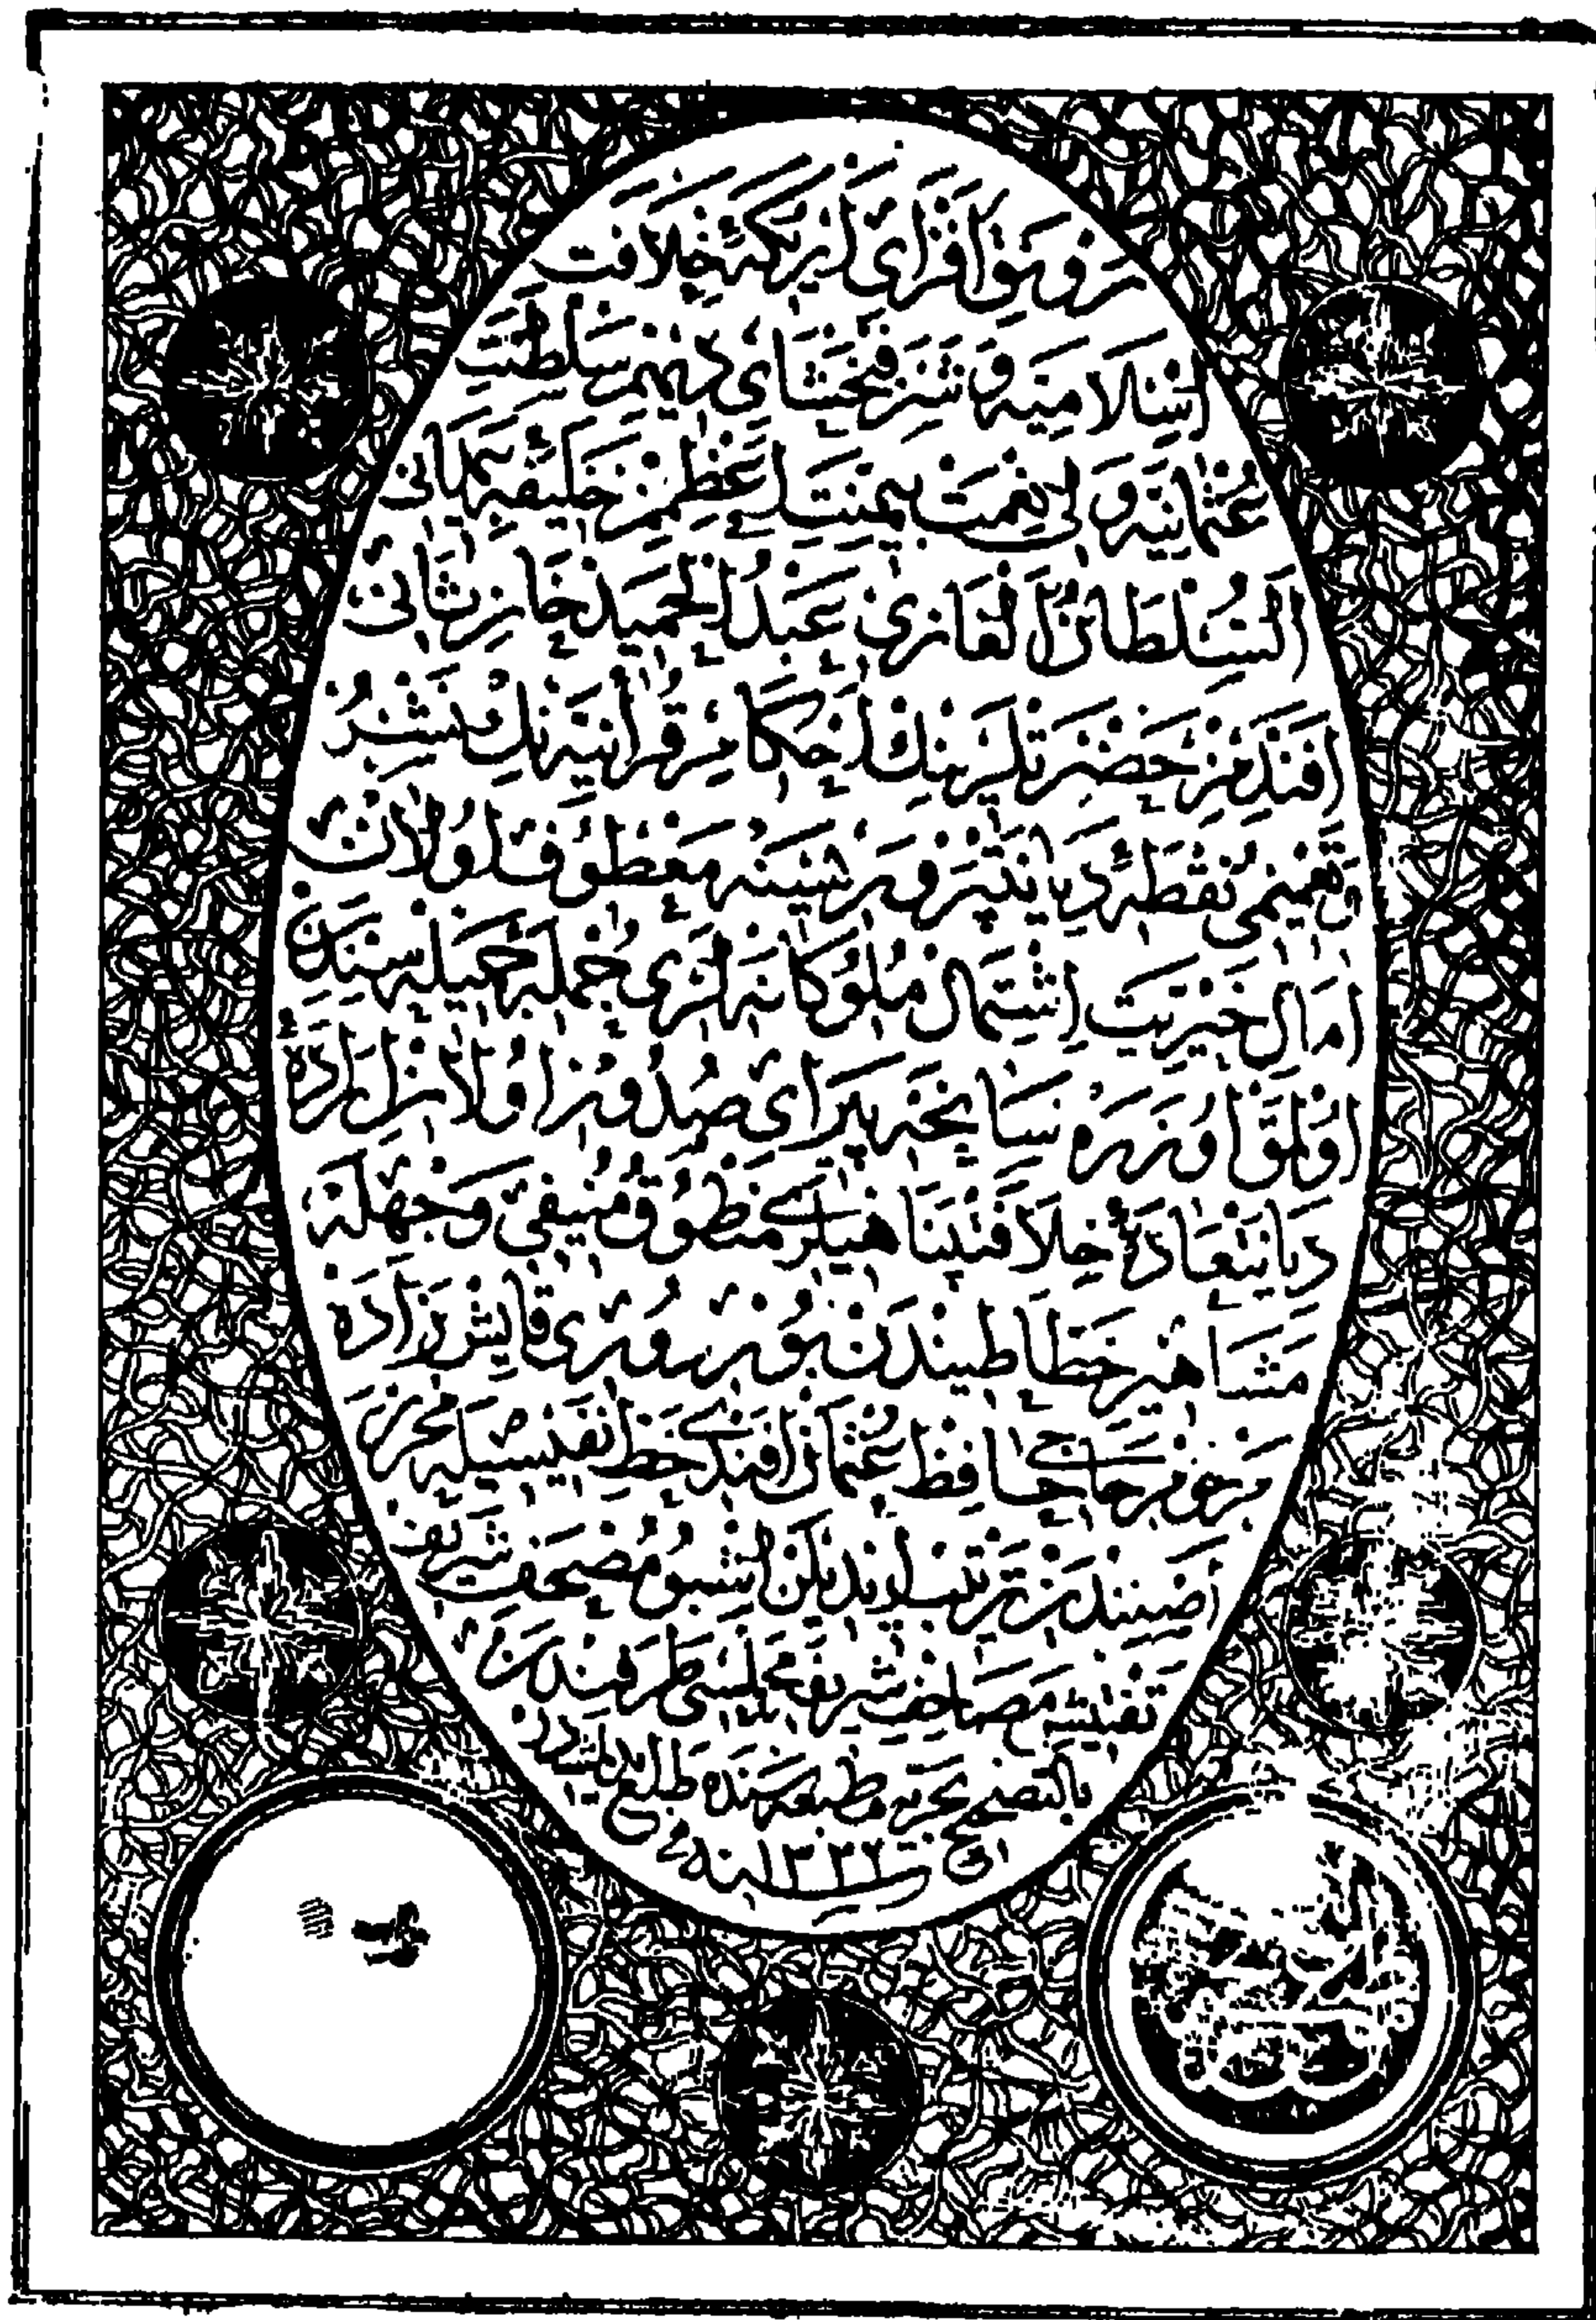 رونق افزای اریکهٔ خلافت
اسلامیه و شرفبخشای دیهیم سلطنت
عثمانیه ولی نعمت بیمنتل اعظمز خلیفه یمانی
السلطان الغازی عبد الحمید خان ثانی
افندمز حضرتلرینك احکام قرانیه نك نشر
وتعمیمی نقطهٔ دیانتپروریسنه معطوف اولان
امال خیریت اشتمال ملوکانه لری جمله جمیله سندن
اولمق اوزره سانحه پیرای صدور اولان ارادهٔ
دیانتعادهٔ خلافتپناهیلری منطوق منیفی وجهله
مشاهیر خطاطیندن بوردوری قایش زاده
مرحوم حاجی حافظ عثمان افندی خط نفیسیله محرر
اصلندن ترتیب ایدیلن اشبو مصحف شریف
تفتیش مصاحف شریفه مجلسی طرفندن
بالتصحیح بحریه مطبعه سنده طبع ایدلمشدر
سنه ١٣٢٢